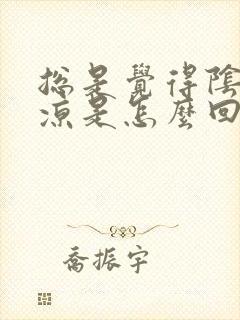 總是覺得陰
涼是怎麼回
喬振宇